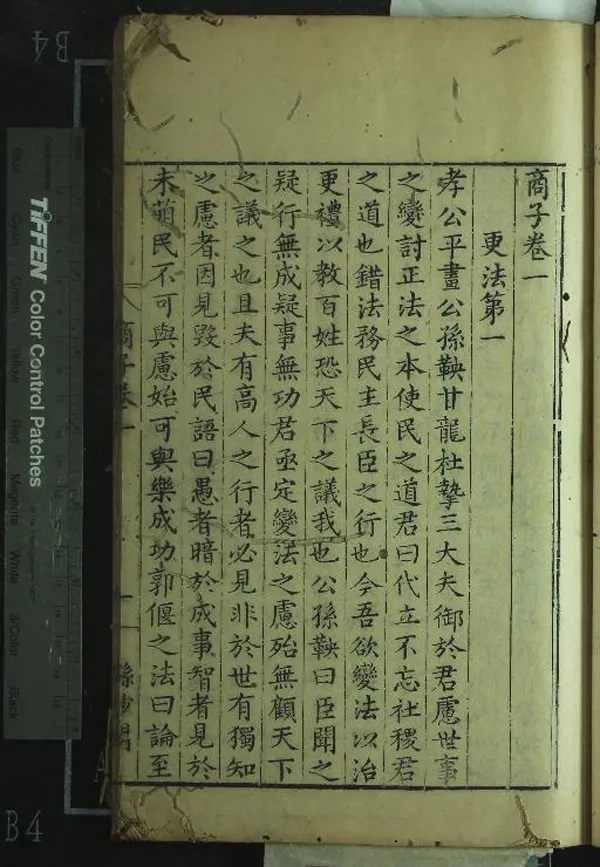 商子卷一
更法第一
孝公平畫公孫鞅甘龍杜摯三大夫御於君慮世事
之變討正法之本使民之道君曰代立不忘社稷君
之道也錯法務民主長臣之行也今吾欲變法以治
更禮以教百姓恐天下之議我也公孫鞅曰臣聞之
疑行無成疑事無功君亟定變法之慮殆無顧天下
之議之也且夫有高人之行者必見非於世有獨知
之慮者因見毀於民語曰愚者暗於成事智者見於
未萌民不可與慮始可與樂成功郭偃之法曰論至
商子卷一
一
B4
TIFFEN Color Control Patches
Blue
Cyan
Green
Yellow
Red
Magenta
White
3/Color
Black
B4